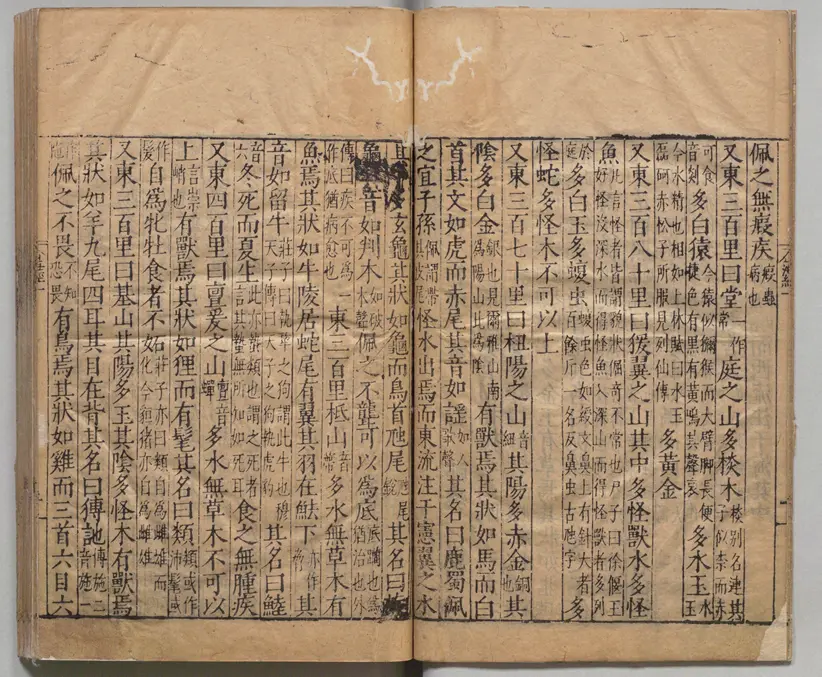 佩之無瘕疾瘕蟲病也
又東三百里曰堂一作常庭之山多棪木棪別名連其子似柰而赤
可食音剡多白猿今猿似獼猴而大臂脚長便捷色有黑有黃鳴其聲哀多水玉水玉
今水精也相如上林賦曰水玉磊砢赤松子所服見列仙傳多黃金
又東三百八十里曰猨翼之山其中多怪獸水多怪
魚凡言怪者皆謂貌狀倔奇不常也尸子曰徐偃王好怪沒深水而得怪魚入深山而得怪獸者多列
於庭多白玉多蝮虫蝮虫色如綬文鼻上有針大者百餘斤一名反鼻虫古虺字多
怪蛇多怪木不可以上
又東三百七十里曰杻陽之山音紐其陽多赤金銅也其
陰多白金銀也見爾雅山南爲陽山北爲陰有獸焉其狀如馬而白
首其文如虎而赤尾其音如謠如人歌聲其名曰鹿蜀佩
之宜子孫佩謂帶其皮尾怪水出焉而東流注于憲翼之水
玄龜其狀如龜而鳥首虺尾虺尾銳其名曰
龜音如判木如破木聲佩之不聾可以爲底底躪也爲猶治也外
傳曰疾不可爲一作底猶病愈也東三百里柢山音帶多水無草木有
魚焉其狀如牛陵居蛇尾有翼其羽在魼下亦作脅其
音如留牛莊子曰執犂之狗謂此牛也穆天子傳曰天子之狗執虎豹其名曰鯥
音六冬死而夏生此亦蟄類也謂之死者言其蟄無所知如死耳食之無腫疾
又東四百里曰亶爰之山亶音蟬多水無草木不可以
上言崇峭也有獸焉其狀如狸而有髦其名曰類類或作沛髦或
作髮自爲牝牡食者不妬莊子亦曰類自爲雌雄而化今貆豬亦自爲雌雄
又東三百里曰基山其陽多玉其陰多怪木有獸焉
其狀如羊九尾四耳其目在背其名曰猼訑猼施二音施一
作陁佩之不畏不知恐畏有鳥焉其狀如雞而三首六目六